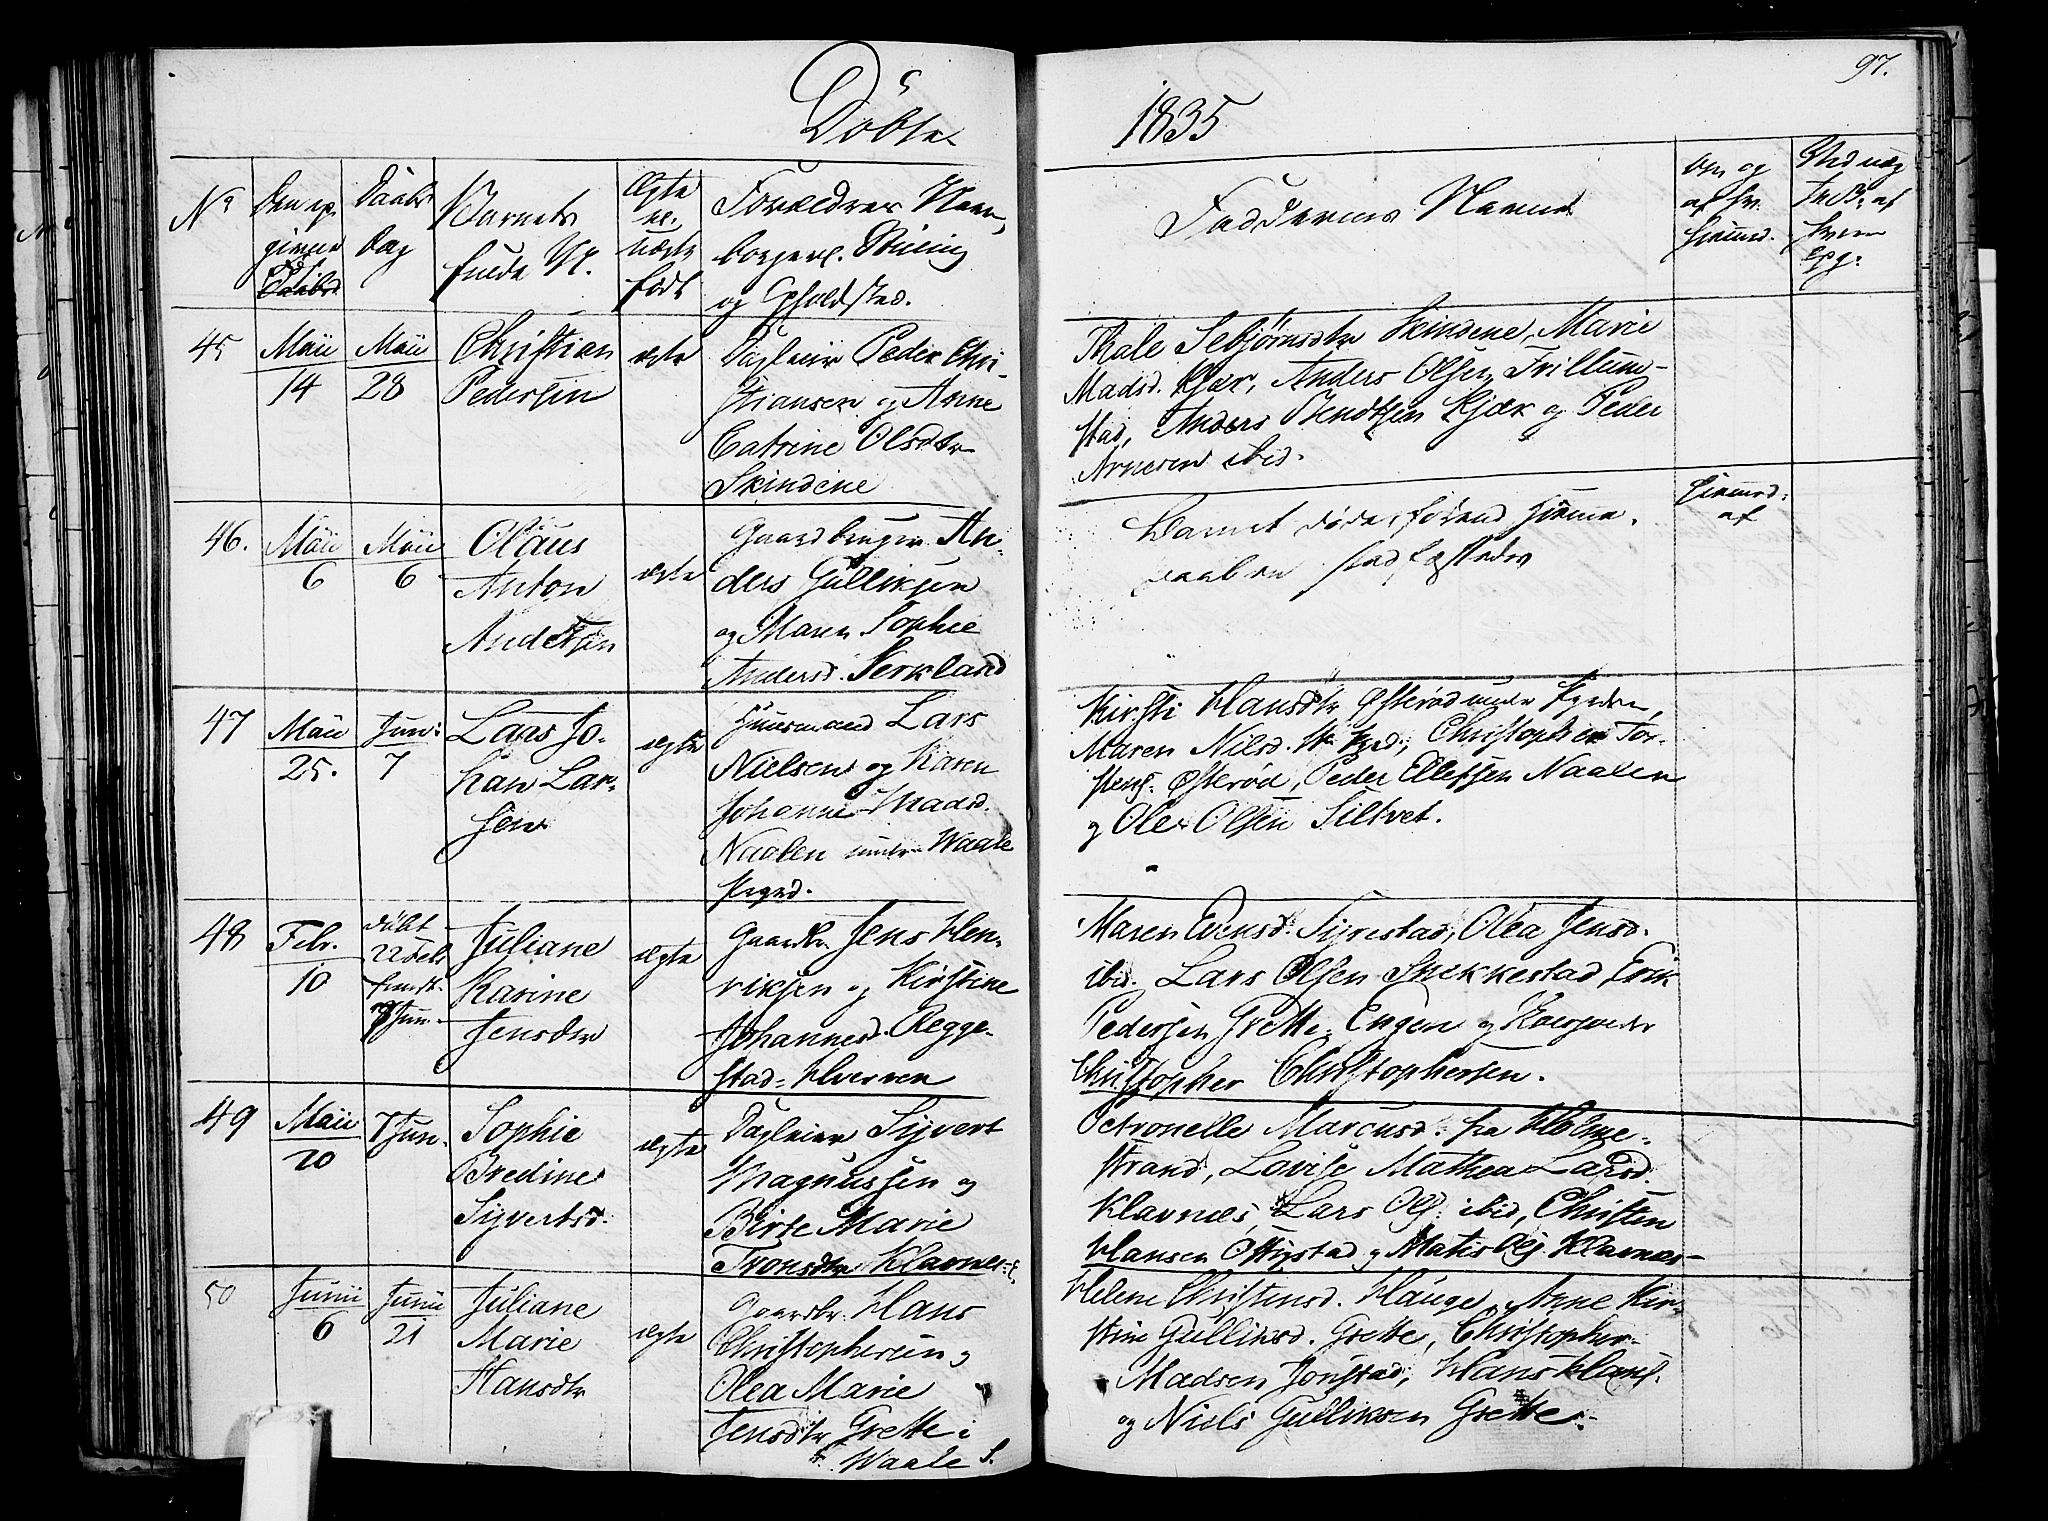 97.
Döbte
1835
No
Den op
givne
Daabs
Daabs
Dag
Barnets
fulde N.
Ægte
el.
uægte
födt
Forældres Navn,
borgerl. Stilling
og Opholdsted.
Faddernes Navne
Om og
af hv.
hiemd.
45
Maii
14
Maii
28
Christian
Pedersen
ægte
Dagleier Peder Chri-
stiansen og Anne
Catrine Olsdtr
Skindene
Thale Sebjørnsdtr Skindene, Marie
Madsd. Kjær, Anders Olsen Trillum-
stad, Anders Bendtsen Kjær og Peder
Arnesen ibid.
46.
Maii
6
Maii
6
Olaus
Anton
Andersen
ægte
Gaardbruger An-
ders Gulliksen
og Maren Sophie
Andersd. Serkland
Barnet døde førend hieme
daaben stadfæstedes
hiemd:
af
47
Maii
25.
Juni
7
Lars Jo-
han Lar-
sen
ægte
Huusmand Lars
Nielsen og Karen
Johanne Madsd.
Naalen under Waale
Kirsti Hansdtr Østerød under
Maren Nilsd. Christopher Tor-
stens. Østerød, Peder Ellefsen Naalen
og Ole Olsen Siltvet.
48
Febr.
10
döbt
22 Feb
7 Jun.
Juliane
Karine
Jensdtr
ægte
Gaardbr. Jens Hen-
riksen og Kirstine
Johannesd. Regge-
stad = Hverven
Maren Evensd. Tyrestad, Olea Jensd.
ibid. Lars Olsen Snekkestad Erik
Pedersen Grette, Engen og
Christopher Christophersen.
49
Maii
20
7 Jun.
Sophie
Bredine
Syvertsd.
ægte
Dagleier Syvert
Magnussen og
Birte Marie
Tronsdtr Klavnes
Petronelle Marcusd. fra Holme-
strand, Lovise Mathea Larsd.
Klavnes, Lars Ols. ibid, Christen
Hansen Ottystad og Matis Ols Klavnes
50
Junii
6
Junii
21
Juliane
Marie
Hansdtr
ægte
Gaardbr. Hans
Christophersen og
Olea Marie
Jensdtr Grette i
Waale S.
Helene Christensd. Hauge, Anne Kir-
stine Gulliksd. Grette, Christopher
Madsen Jonstad, Hans Hans.
og Niels Gulliksen Grette.